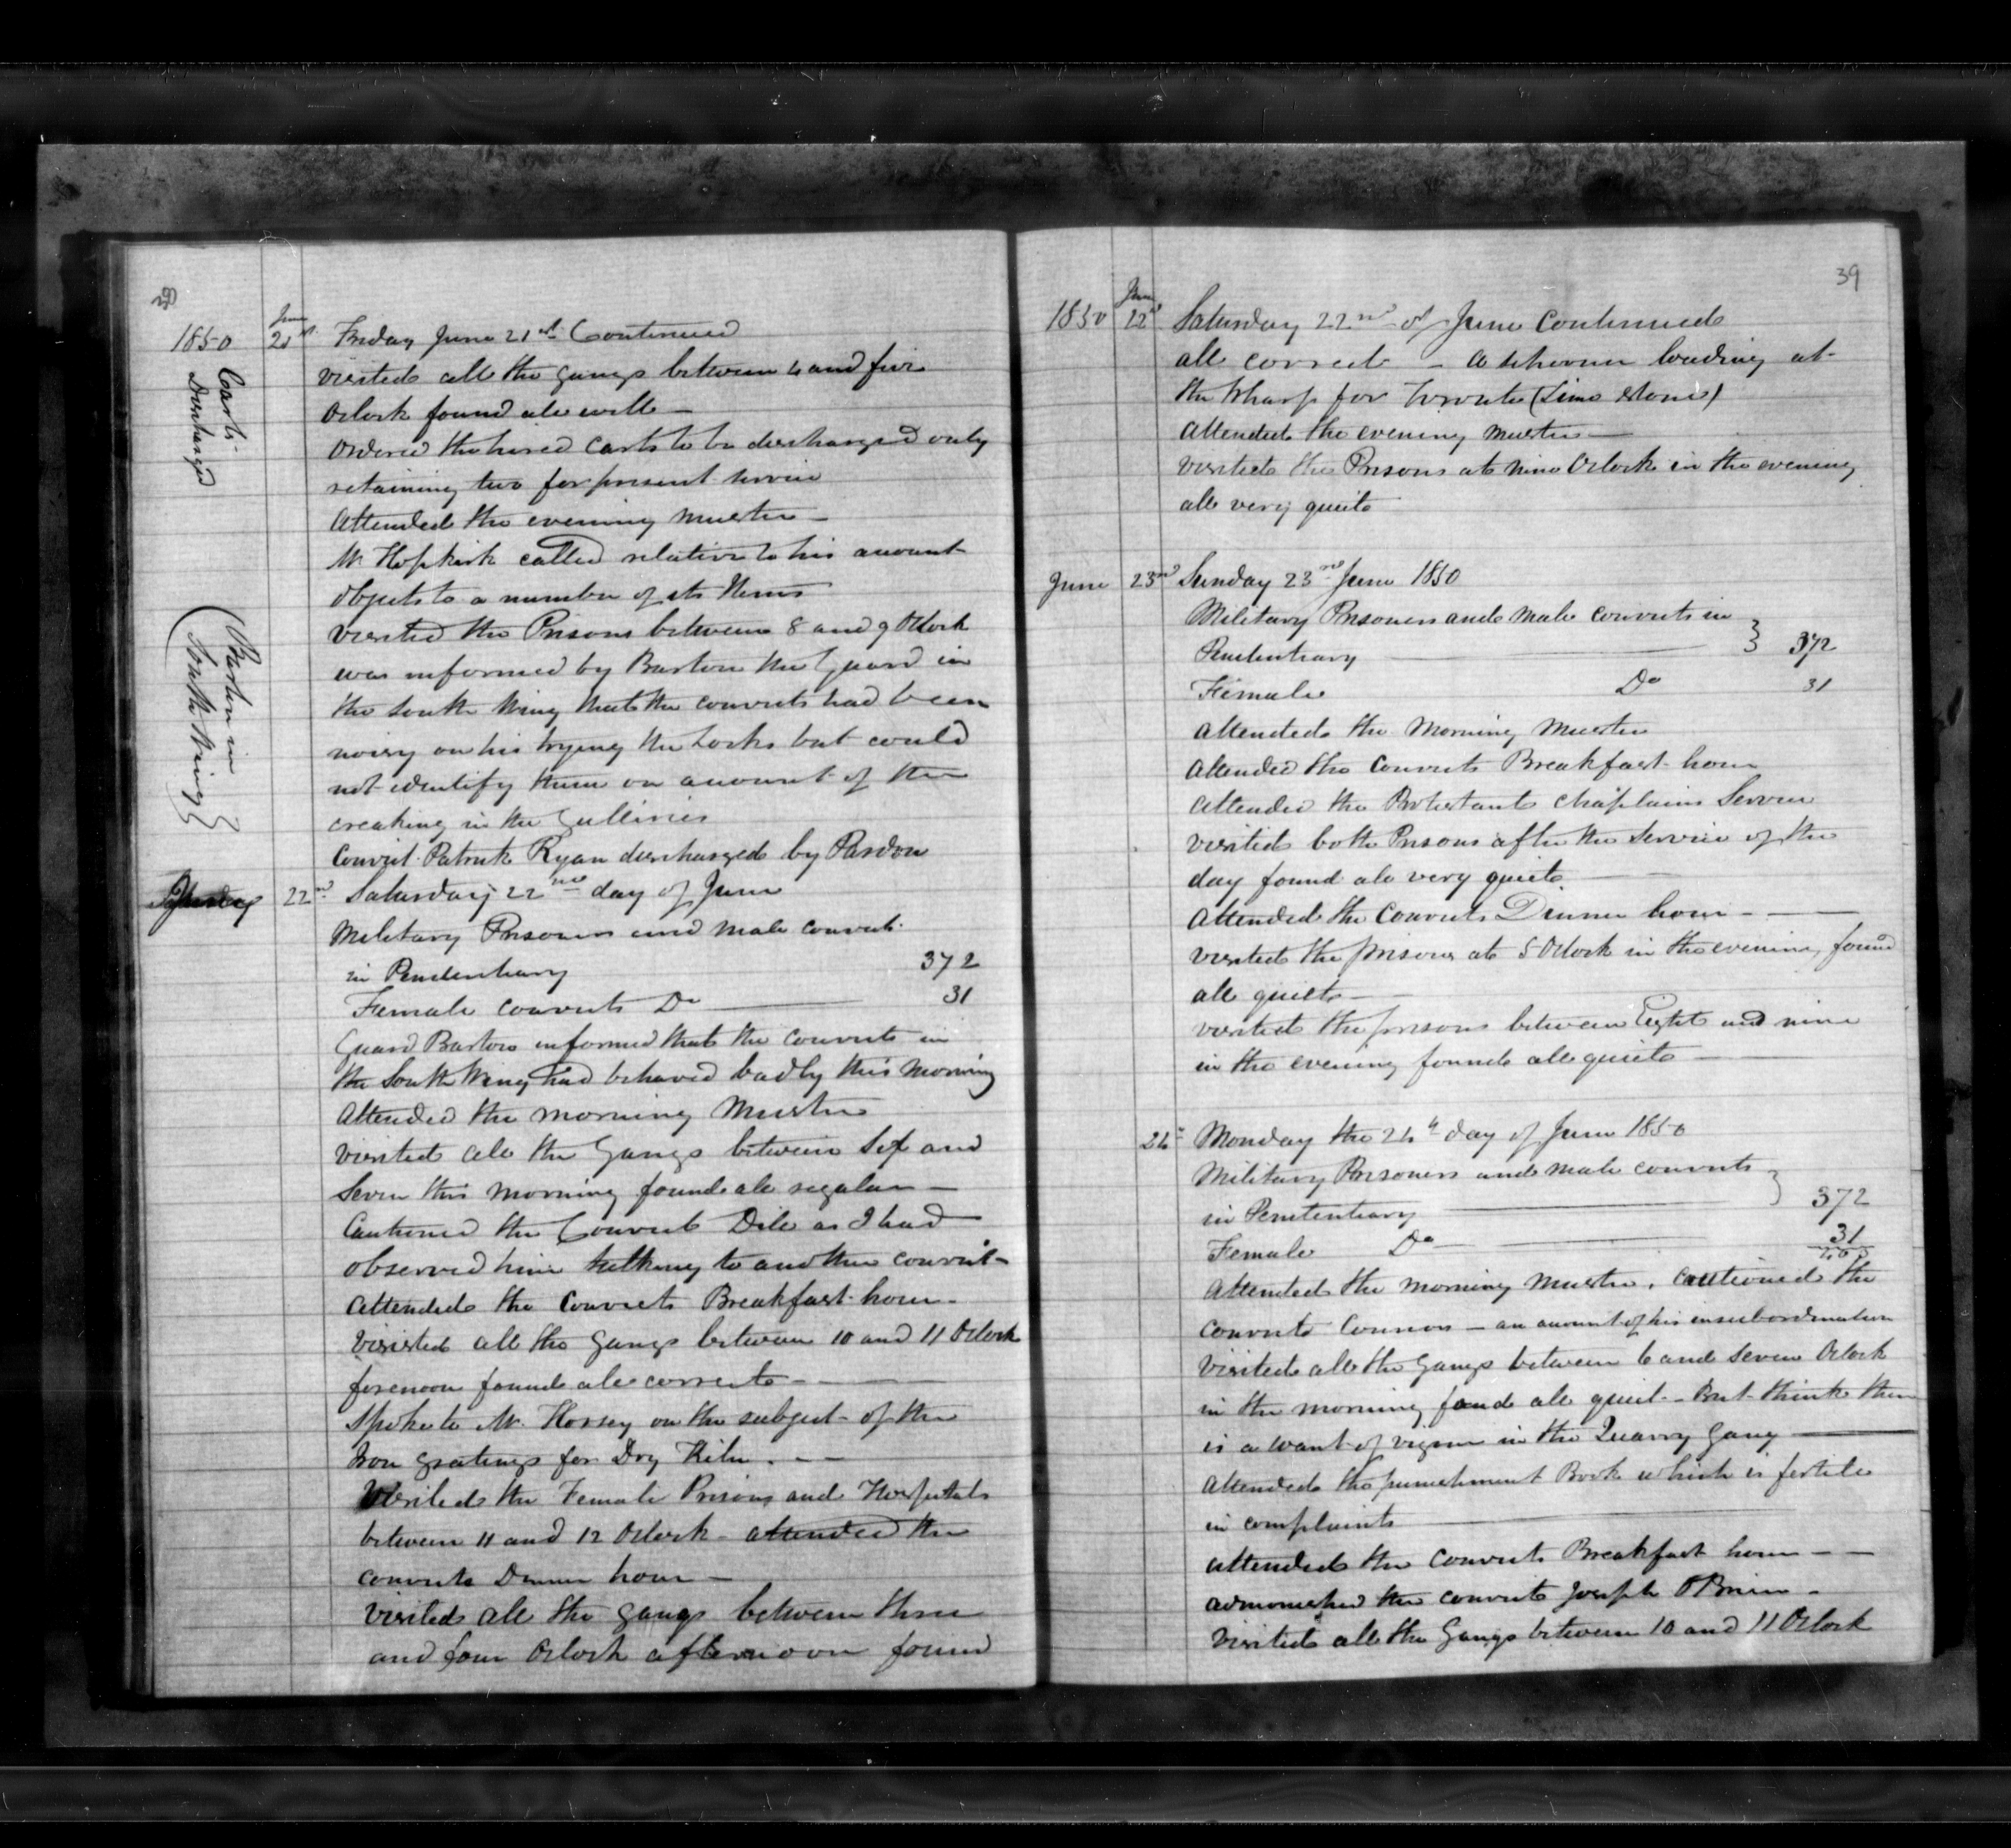 1850
June 21st
Friday June 21st Continued
visited all the gangs between 4 and five
Oclock found all well —
Ordered the hired Carts to be discharged only
retaining two for present service
Attended the evening muster —
Mr Hopkirk called relative to his account
objects to a number of its Items
visited the Prisons between 8 and 9 Oclock
was informed by Barton the Guard in
the South Wing that the convicts had been
noisy on his trying the Locks but could
not identify them on account of the
creaking in the Galleries
Convict Patrick Ryan discharged by Pardon
Carts
Discharged
(Barton in
South Wing)
22nd Saturday 22nd day of June
Military Prisoners and male convicts
in Penitentiary 372
Female convicts Do — 31
Guard Barton informed that the convicts in
the South Wing had behaved badly this morning
Attended the morning Muster
visited all the Gangs between Six and
Seven this morning found all regular —
Cautioned the Convict Dile as I had
observed him talking to another convict —
attended the Convicts Breakfast hour —
Visited all the Gangs between 10 and 11 Oclock
forenoon found all correct — —
Spoke to Mr Horsey on the subject of the
Iron gratings for Dry Kiln . — —
Visited the Female Prison and Hospitals
between 11 and 12 Oclock — attended the
convicts Dinner hour —
Visited all the gangs between three
and four Oclock afternoon found
39
1850 June 22nd Saturday 22nd of June Continued
all correct — a schooner loading at
the Wharf for Toronto (Lime Stone)
Attended the evening muster —
visited the Prisons at nine Oclock in the evening
all very quiet
June 23rd Sunday 23rd June 1850
Military Prisoners and Male convicts in }
Penitentiary — 372
Female Do 31
Attended the Morning Muster
Attended the Convicts Breakfast hour
Attended the Protestant Chaplains Service
visited both Prisons after the Service of the
day found all very quiet —
Attended the Convicts Dinner hour — —
visited the prisons at 5 Oclock in the evening found
all quiet —
visited the prisons between Eight and nine
in the evening found all quiet —
24th Monday the 24th day of June 1850
Military Prisoners and male convicts }
in Penitentiary — 372
Female Do — 31
403
Attended the morning muster. Cautioned the
convict Connor — on account of his insubordination
Visited all the Gangs between 6 and Seven Oclock
in the morning found all quiet — But think there
is a want of vigour in the Quarry Gang —
Attended the punishment Book which is fertile
in complaints —
attended the Convicts Breakfast hour — —
admonished the convict Joseph OBrien —
Visited all the Gangs between 10 and 11 Oclock